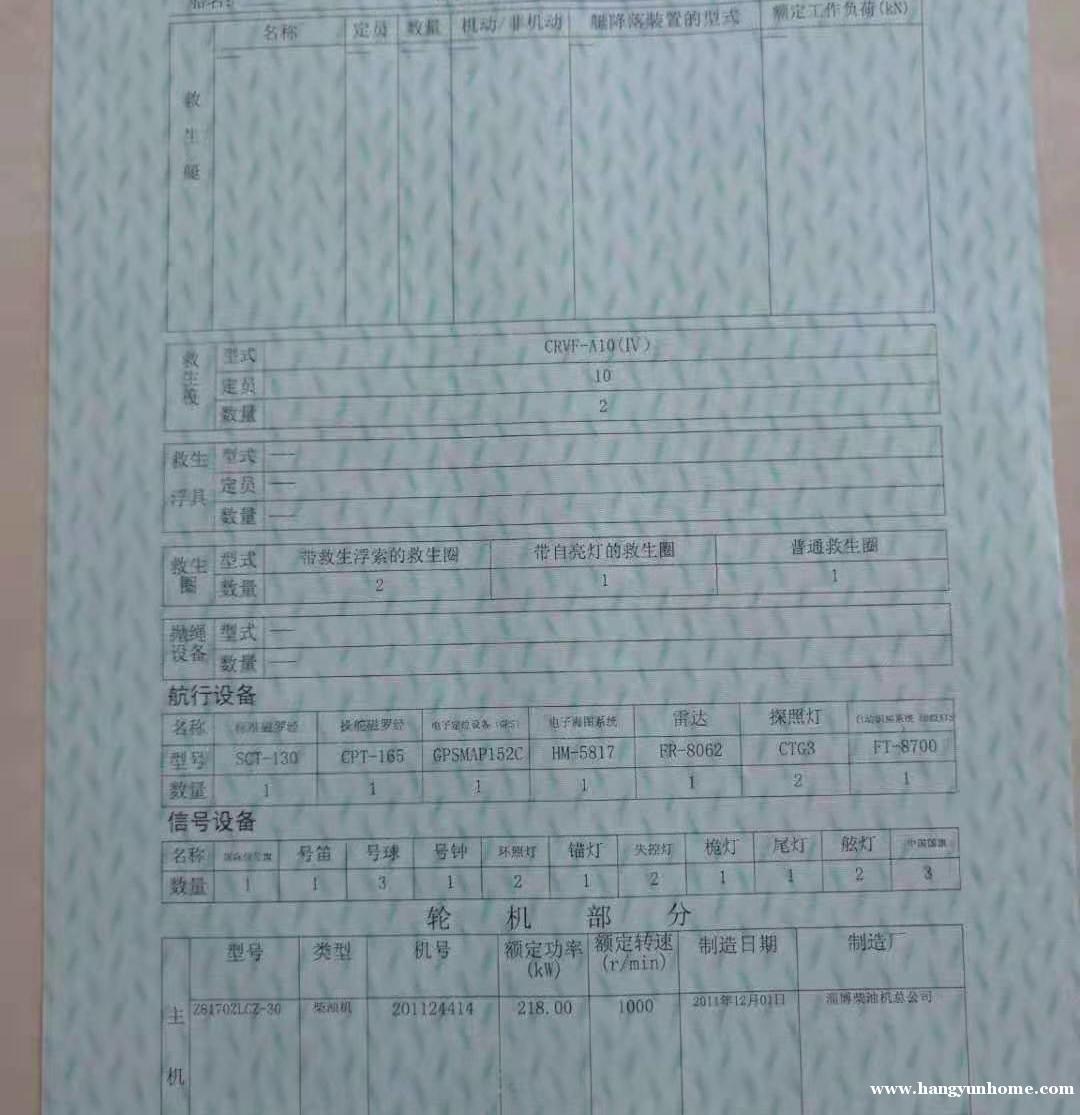 船名:
名称 定员 数量 机动/非机动 艇降落装置的型式 额定工作负荷(kN)
救生艇 —
救生筏 型式 CRVF-A10(Ⅳ)
定员 10
数量 2
救生浮具 型式 —
定员 —
数量 —
救生圈 型式 带救生浮索的救生圈 带自亮灯的救生圈 普通救生圈
数量 2 1 1
抛绳设备 型式 —
数量 —
航行设备
名称 标准磁罗经 操舵磁罗经 电子定位设备(GPS) 电子海图系统 雷达 探照灯
型号 SCT-130 CPT-165 GPSMAP152C HM-5817 FR-8062 CTG3 FT-8700
数量 1 1 1 1 1 2 1
信号设备
名称 号笛 号球 号钟 环照灯 锚灯 失控灯 桅灯 尾灯 舷灯 中国国旗
数量 1 1 3 1 2 1 2 1 1 2 3
轮机部分
型号 类型 机号 额定功率(kW) 额定转速(r/min) 制造日期 制造厂
主机 Z8170ZLCZ-30 柴油机 201124414 218.00 1000 2011年12月01日 淄博柴油机总公司
www.hangyunhome.com